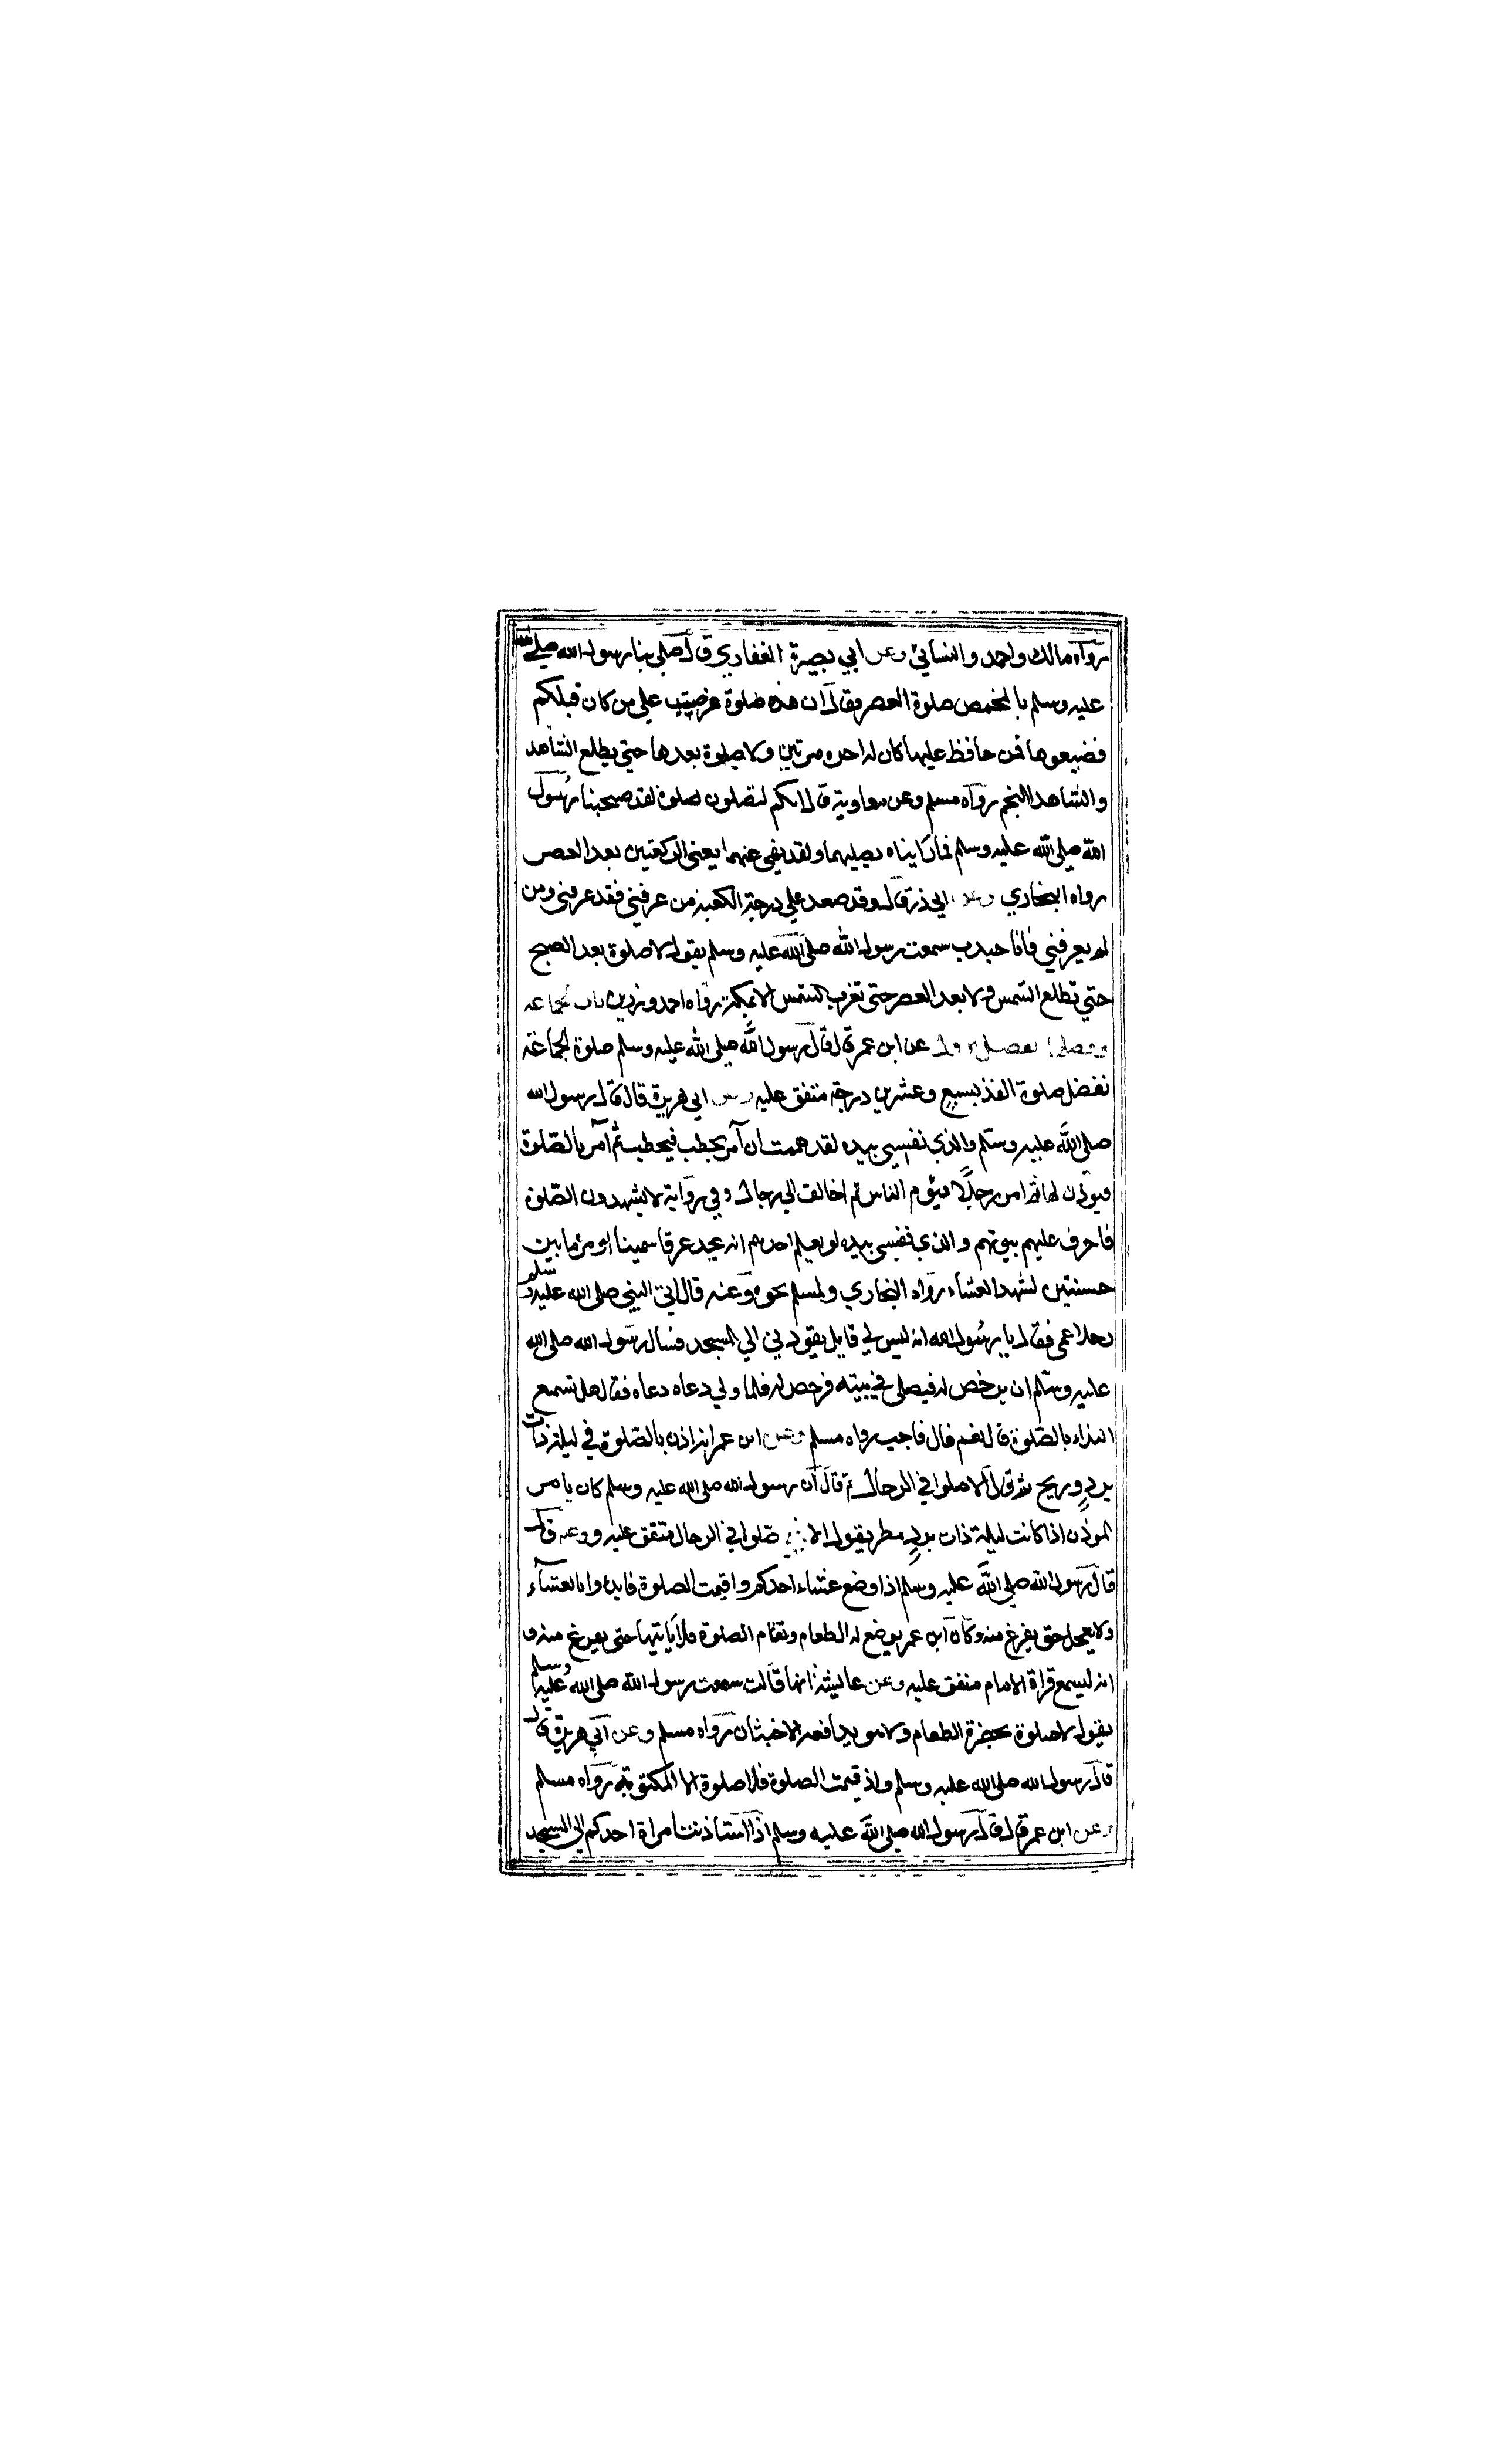 رواه مالك واحمد والنسائي وعن ابي بصيرة الغفاري قال صلى بنا رسول الله صلى الله
عليه وسلم بالمخمص صلوة العصر فقال ان هذه صلوة عرضت على من كان قبلكم
فضيعوها فمن حافظ عليها كان له اجره مرتين ولا صلوة بعدها حتي يطلع الشاهد
والشاهد النجم رواه مسلم وعن معاوية قال انكم لتصلون لصلوة لقد صحبنا رسول
الله صلى الله عليه وسلم فما رايناه يصليهما ولقد نهى عنهما يعني الركعتين بعد العصر
رواه البخاري وعن ابي ذر قال وقد صعد علي درجة الكعبة من عرفني فقد عرفني ومن
لم يعرفني فانا جندب سمعت رسول الله صلى الله عليه وسلم يقول لا صلوة بعد الصبح
حتي تطلع الشمس ولا بعد العصر حتى تغرب الشمس الا بمكة رواه احمد ورزين باب الجماعة
وفضلها الفصل الاول عن ابن عمر قال قال رسول الله صلى الله عليه وسلم صلوة الجماعة
تفضل صلوة الفذ بسبع وعشرين درجة متفق عليه وعن ابي هريرة قال قال رسول الله
صلى الله عليه وسلم والذي نفسي بيده لقد هممت ان آمر بحطب فيحطب ثم آمر بالصلوة
فيوذن لها ثم امر رجلا فيؤم الناس ثم اخالف الي رجال وفي رواية لا يشهدون الصلوة
فاحرق عليهم بيوتهم والذي نفسي بيده لو يعلم احدهم انه يجد عرقا سمينا او مرماتين
حسنتين لشهد العشاء رواه البخاري ولمسلم نحوه وعنه قال اتى النبي صلى الله عليه وسلم
رجل اعمى فقال يا رسول الله انه ليس لي قايد يقودني الي المسجد فسال رسول الله صلى الله
عليه وسلم ان يرخص له فيصلي في بيته فرخص له فلما ولي دعاه دعاه فقال هل تسمع
النداء بالصلوة قال نعم قال فاجب رواه مسلم وعن ابن عمر انه اذن بالصلوة في ليلة ذات
برد وريح ثم قال الا صلوا في الرحال ثم قال ان رسول الله صلى الله عليه وسلم كان يامر
الموذن اذا كانت ليلة ذات برد مطر يقول الا صلوا في الرحال متفق عليه وعنه قال
قال رسول الله صلى الله عليه وسلم اذا وضع عشاء احدكم واقيمت الصلوة فابدوا بالعشاء
ولا يعجل حتى يفرغ منه وكان ابن عمر يوضع له الطعام وتقام الصلوة فلا ياتيها حتى يفرغ منه و
انه ليسمع قراة الامام متفق عليه وعن عايشة انها قالت سمعت رسول الله صلى الله عليه وسلم
يقول لا صلوة بحضرة الطعام ولا هو يدافعه الاخبثان رواه مسلم وعن ابي هريرة قال
قال رسول الله صلى الله عليه وسلم واذ قيمت الصلوة فلا صلوة الا المكتوبة رواه مسلم
وعن ابن عمر قال قال رسول الله صلى الله عليه وسلم اذا استاذنت امراة احدكم الى المسجد